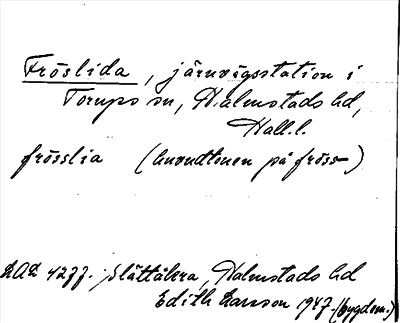 Fröslida, järnvägsstation i
Torups sn, Halmstads hd,
Hall.l.
frösslia (huvudtonen på fröss-)
LAL 4277. Slättåkra, Halmstads hd
Edith Larsson 1947 (bygdem.)